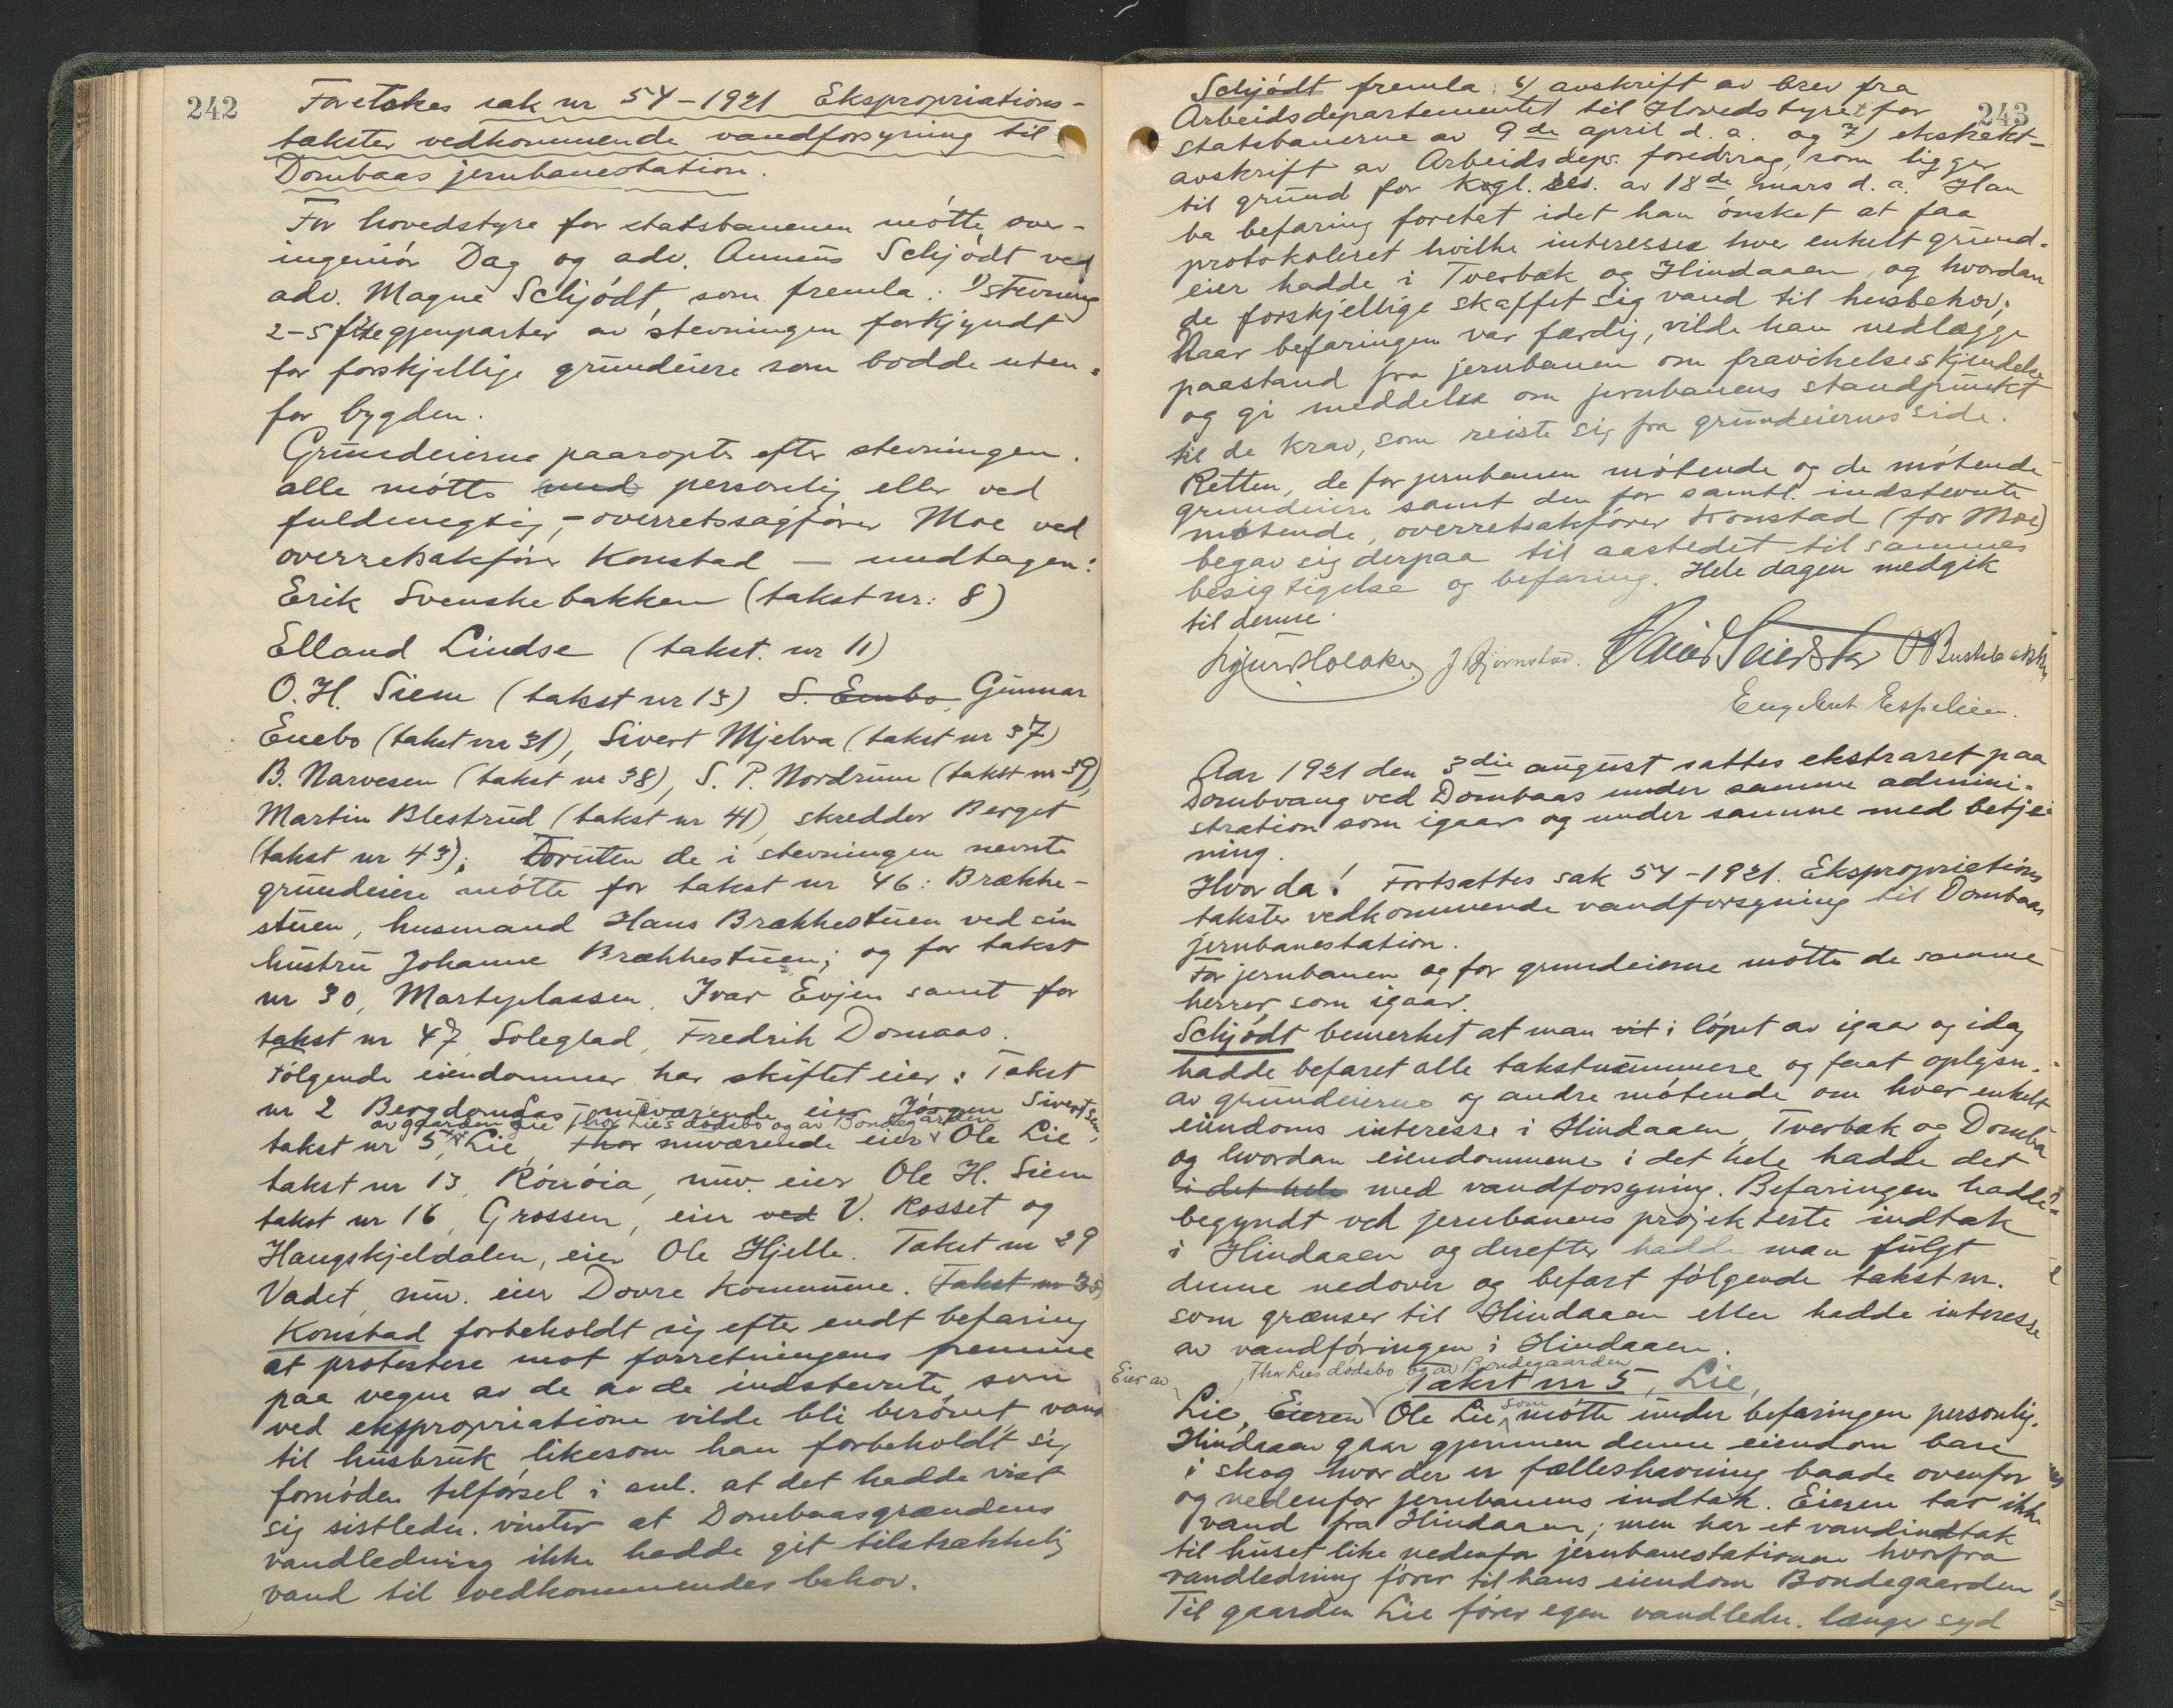 242
Foretokes sak nr 54-1921 Ekspropriations-
takster vedkommende vandforsyning til
Dombaas jernbanestation.
For hovedstyre for statsbanenen møtte over-
ingeniør Dag og adv. Annæus Schjødt ved
adv. Magne Schjødt, som fremla: 1) Stevning
2-5 fire gjenparter av stevningen forkjyndt
for forskjellige grundeiere som bodde uten-
for bygden.
Grundeierne paaropts efter stevningen.
alle møtte med personlig eller ved
fuldmegtig, - overretssagfører Moe ved
overretsakfører Konstad — undtagen:
Erik Svenskebakken (takst nr: 8)
Elland Lindse (takst. nr 11)
O. H. Siem (takst nr 13) S. Enebo, Gunnar
Enebo (takst nr 31), Sivert Mjelva (takst nr 37)
B. Narvesen (takst nr 38), S. P. Nordrum (takst nr 39),
Martin Blestrud (takst nr 41), skredder Berget
(takst nr 43); Foruten de i stevningen nevnte
grundeiere møtte for takst nr 46: Brække-
stuen, husmand Hans Brækkestuen ved sin
hustru Johanne Brækkestuen; og for takst
nr 30, Marteplassen, Ivar Evjen samt for
takst nr 47, Soleglad, Fredrik Domaas.
Følgende eiendommer har skiftet eier: Takst
nr 2 Bergdomsaas - nuværende eier Jørgen Sivertsen,
av gaarden Lie Thor Lies dødsbo og av Bondegaarden
takst nr 5, Lie, Thor nuværende eier Ole Lie
takst nr 13, Røirøia, nuv. eier Ole H. Siem
takst nr 16, Grossen, eier ved V. Rosset og
Haugskjeldalen, eier Ole Hjelle. Takst nr 29
Vadet, nuv. eier Dovre Kommune. Takst nr 35
Konstad forbeholdt sig efter endt befaring
at protestere mot forretningens fremme
paa vegne av de av de indstevnte, som
ved ekspropriatione vilde bli berøvet vand
til husbruk likesom han forbeholdt sig
fornøden tilførsel i anl. at det hadde vist
sig sistledn. vinter at Dombaasgrændens
vandledning ikke hadde git tilstrækkelig
vand til vedkommendes behov.
243
Schjødt fremla: 6) avskrift av brev fra
Arbeidsdepartementet til Hovedstyret for
statsbanerne av 9de april d. a. og 7) ekstrakt-
avskrift av Arbeidsdeps. foredrag, som ligger
til grund for kogl. res. av 18de mars d. a. Han
ba befaring foretat idet han ønsket at faa
protokoleret hvilke interesser hver enkelt grund-
eier hadde i Tverbæk og Hindaaen, og hvordan
de forskjellige skaffet sig vand til husbehov;
Naar befaringen var færdig, vilde han nedlægge
paastand fra jernbanen om fravikelseskjendelse
og gi meddelse om jernbanens standpunkt
til de krav, som reiste sig fra grundeiernes side.
Retten, de for jernbanen møtende og de møtende
grundeiere samt den for samtl. indstevnte
møtende, overretsakfører Konstad (for Moe)
begav sig derpaa til aastedet til sammes
besigtigelse og befaring. Hele dagen medgik
til denne.
J. Bjørnstad.
Engebret Espelien.
Aar 1921 den 3die august sattes ekstraret paa
Dombvang ved Dombaas under samme admini-
stration som igaar og under samme med betje-
ning.
Hvorda! Fortsattes sak 54-1921. Ekspropriations
takster vedkommende vandforsyning til Dombaas
jernbanestation.
For jernbanen og for grundeierne møtte de samme
herrer, som igaar.
Schjødt bemerket at man vit i løpet av igaar og idag
hadde befaret alle takstnummere og faat oplysn.
av grundeierne og andre møtende om hver enkelt
eiendoms interesse i Hindaaen, Tverbæk og Domba
og hvordan eiendommene i det hele hadde det
i det hele med vandforsyning. Befaringen hadde
begyndt ved jernbanens projekterte indtak
i Hindaaen og derefter hadde man fulgt
denne nedover og befart følgende takst nr.
som grænser til Hindaaen eller hadde interesse
av vandføringen i Hindaaen.
Takst nr 5, Lie,
Eier av Thor Lies dødsbo og av Bondegaarden
Lie, Eieren Ole Lie som møtte under befaringen personlig.
Hindaaen gaar gjennem denne eiendom bare
i skog hvor der er fælleshavning baade ovenfor
og nedenfor jernbanens indtak. Eieren tar ikke
vand fra Hindaaen; men har et vandindtak
til huset like nedenfor jernbanestationen hvorfra
vandledning fører til hans eiendom Bondegaarden
Til gaarden Lie fører egen vandledn. længer syd